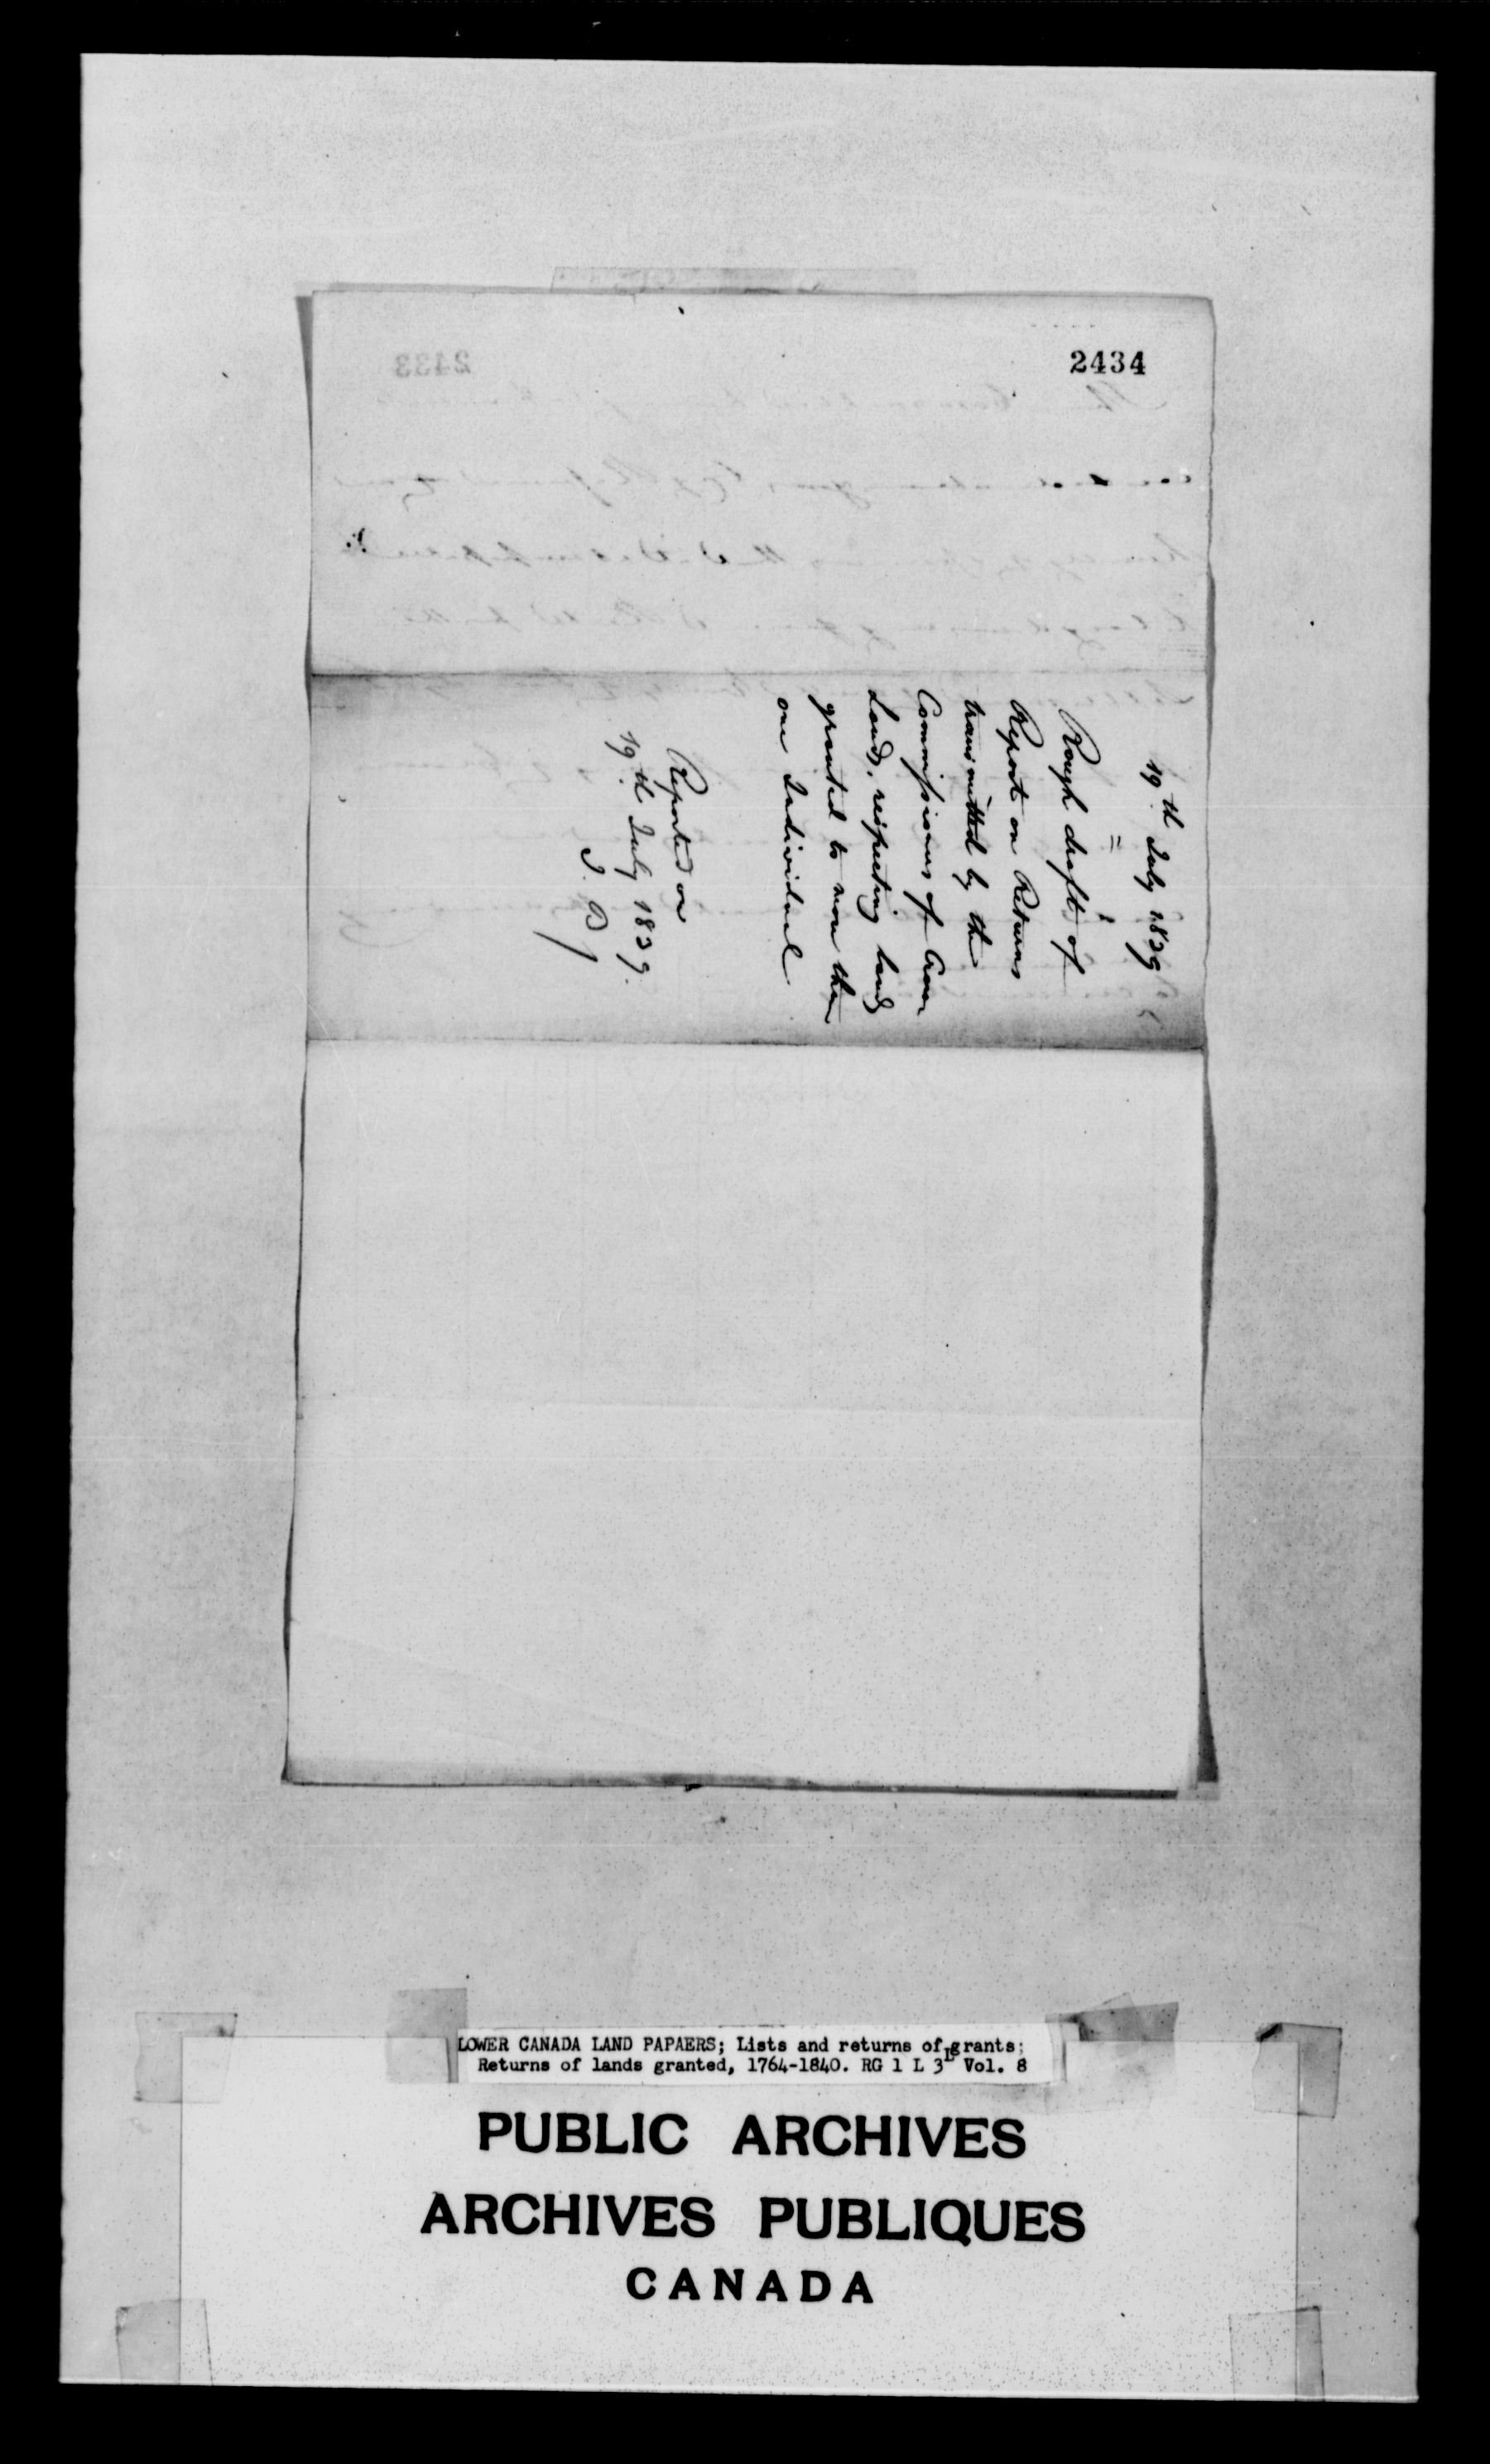 2434
19th July 1839
Rough draft of
Report on Returns
transmitted by the
Commissioner of Crown
Lands, respecting land
granted to more than
one Individual
Reported on
19th July 1839.
LOWER CANADA LAND PAPAERS; Lists and returns of grants;
Returns of lands granted, 1764-1840. RG 1 L 3L Vol. 8
PUBLIC ARCHIVES
ARCHIVES PUBLIQUES
CANADA